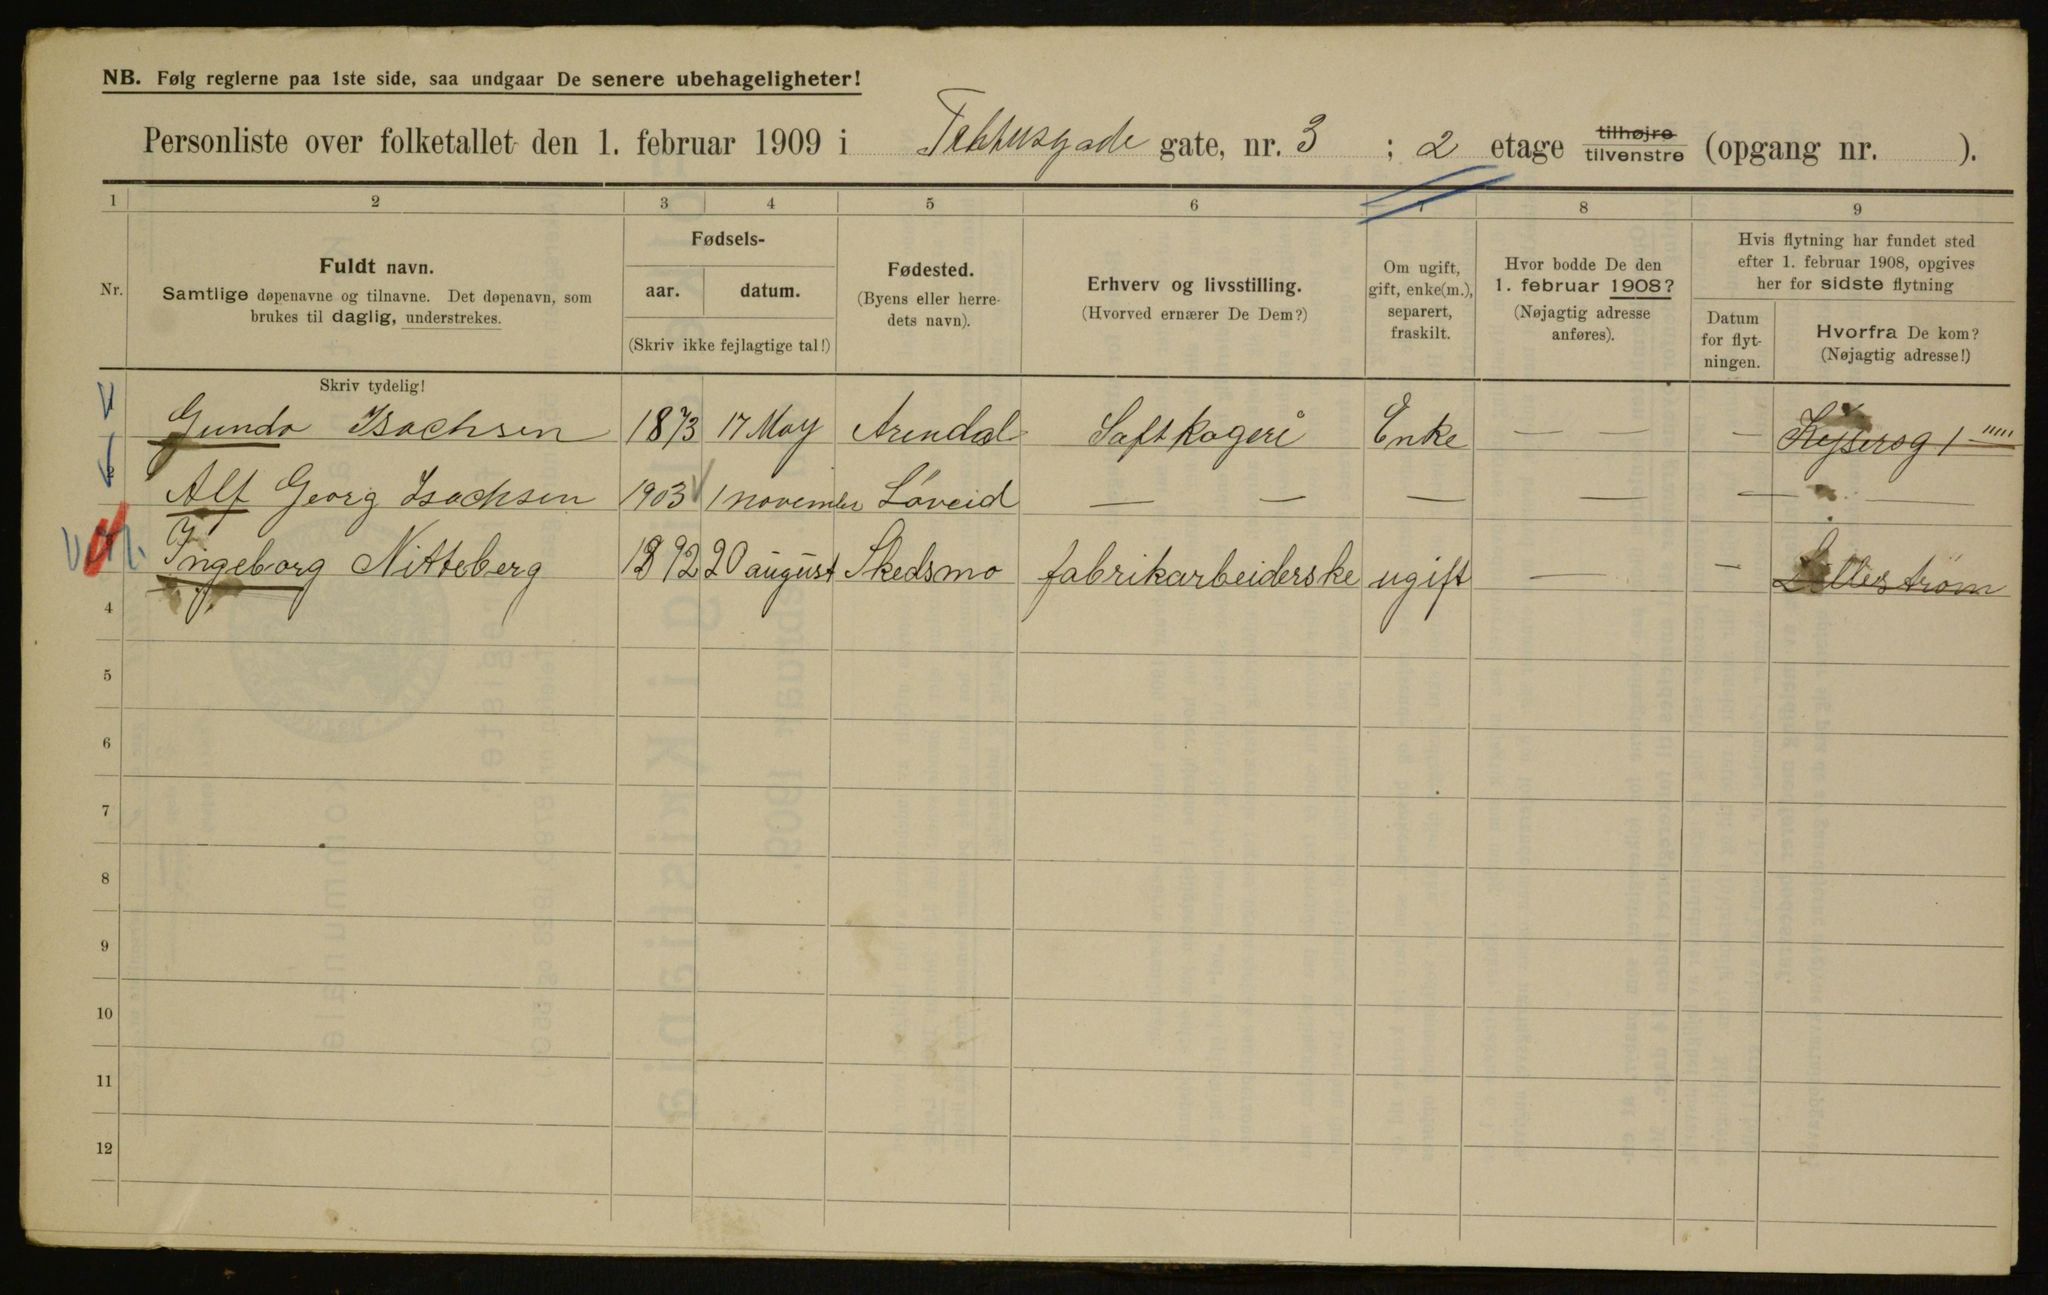 NB. Følg reglerne paa 1ste side, saa undgaar De senere ubehageligheter!
Personliste over folketallet den 1. februar 1909 i Tekhusgade gate, nr. 3 ; 2 etage tilhøjre tilvenstre (opgang nr. ).
1 2 3 4 5 6 7 8 9
Nr.
Fuldt navn.
Samtlige døpenavne og tilnavne. Det døpenavn, som
brukes til daglig, understrekes.
Fødsels-
aar. datum.
(Skriv ikke fejlagtige tal!)
Fødested.
(Byens eller herre-
dets navn).
Erhverv og livsstilling.
(Hvorved ernærer De Dem?)
Om ugift,
gift, enke(m.),
separert,
fraskilt.
Hvor bodde De den
1. februar 1908?
(Nøjagtig adresse
anføres).
Hvis flytning har fundet sted
efter 1. februar 1908, opgives
her for sidste flytning
Datum
for flyt-
ningen.
Hvorfra De kom?
(Nøjagtig adresse!)
Skriv tydelig!
Gunda Isachsen 1873 17 May Arendal Saftkogeri Enke — — — Keysersg 1
2 Alf Georg Isachsen 1903 1 november Løveid — — — — — —
Ingeborg Nitteberg 1892 20 august Skedsmo fabrikarbeiderske ugift — — Lillestrøm
4
5
6
7
8
9
10
11
12